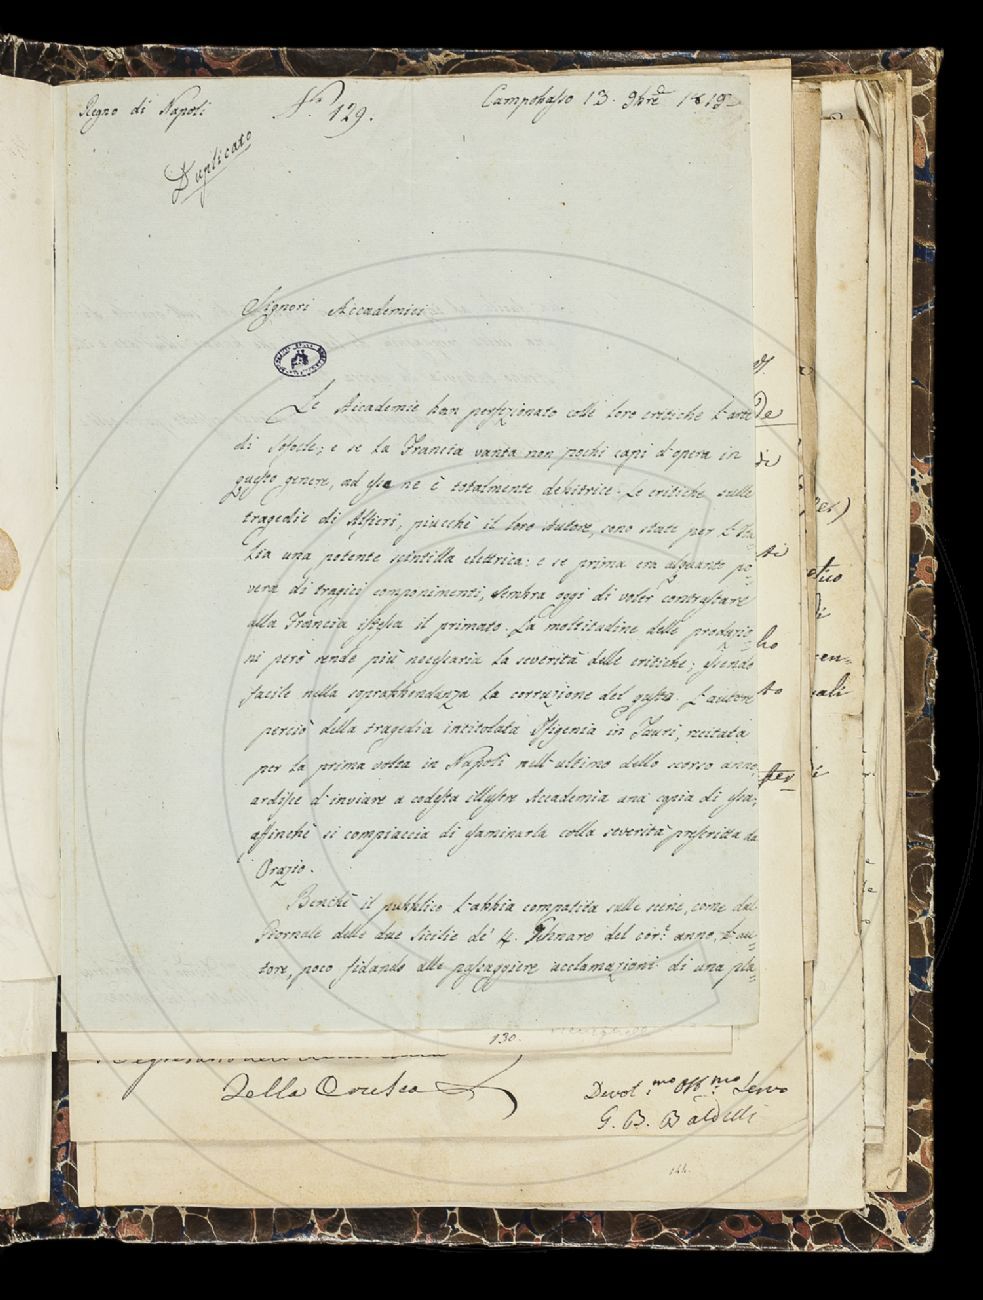 Regno di Napoli
N.° 129.
Campobasso 13. 9bre 1819
Duplicato
Signori Accademici
Le Accademie han perfezionato colle loro critiche l'arte
di Sofocle; e se la Francia vanta non pochi capi d'opera in
questo genere, ad esse ne è totalmente debitrice. Le critiche sulle
tragedie di Alfieri, piucchè il loro Autore, sono state per l'Ita-
lia una potente scintilla elettrica: e se prima era alquanto po-
vera di tragici componimenti, sembra oggi di voler contrastare
alla Francia istessa il primato. La moltitudine delle produzio-
ni però rende più necessaria la severità delle critiche; essendo
facile nella soprabbendanza la corruzione del gusto. L'autore
perciò della tragedia intitolata Ifigenia in Tauri, recitata
per la prima volta in Napoli nell'ultimo dello scorso anno,
ardisce d'inviare a codesta illustre Accademia una copia di essa;
affinchè si compiaccia di esaminarla colla severità prescritta da
Orazio.
Benchè il pubblico l'abbia compatita sulle scene, come dal
Giornale delle due Sicilie de' 4. Gennaro del cor.e anno, l'au-
tore, poco fidando alle passaggiere acclamazioni di una pla-
130.
Della Crusca
Devot.mo Obb.mo Servo
G. B. Baldelli
144.
de
di
ti
ho
to
per
etico
di
cen-
cali
di